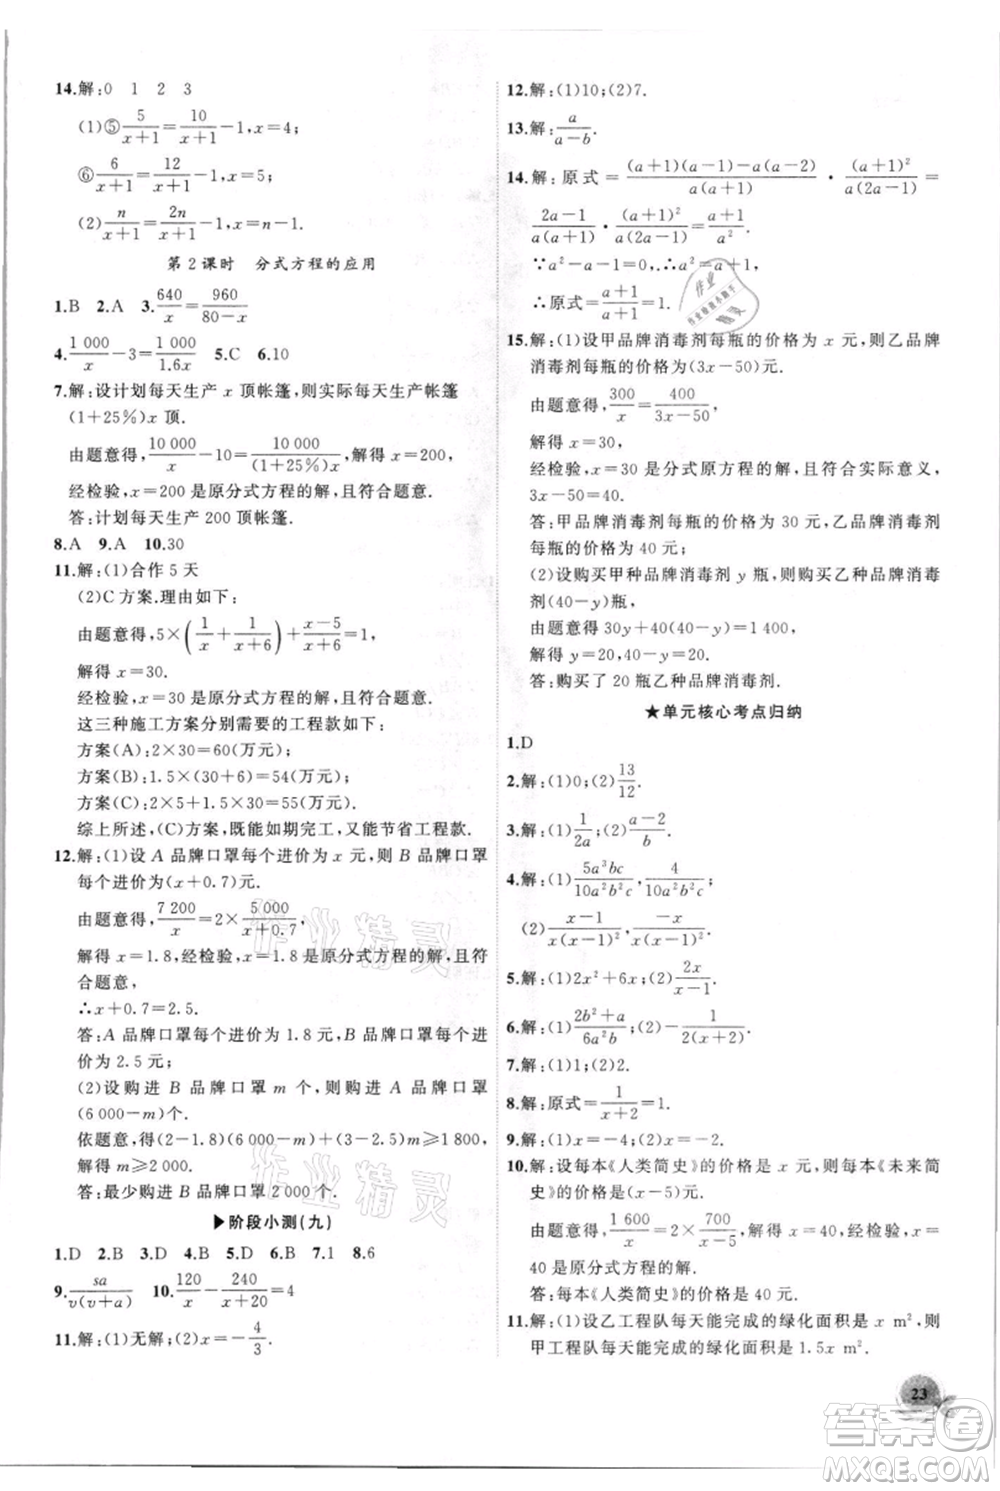 14.解:0 1 2 3
(1)⑤5/(x+1)=10/(x+1)-1,x=4;
⑥6/(x+1)=12/(x+1)-1,x=5;
(2)n/(x+1)=2n/(x+1)-1,x=n-1.
第2课时 分式方程的应用
1.B 2.A 3.640/x=960/(80-x)
4.1 000/x-3=1 000/1.6x 5.C 6.10
7.解:设计划每天生产 x 顶帐篷,则实际每天生产帐篷
(1+25%)x 顶.
由题意得,10 000/x-10=10 000/(1+25%)x,解得 x=200,
经检验,x=200 是原分式方程的解,且符合题意.
答:计划每天生产 200 顶帐篷.
8.A 9.A 10.30
11.解:(1)合作 5 天
(2)C 方案.理由如下:
由题意得,5×(1/x+1/(x+6))+(x-5)/(x+6)=1,
解得 x=30.
经检验,x=30 是原分式方程的解,且符合题意.
这三种施工方案分别需要的工程款如下:
方案(A):2×30=60(万元)
方案(B):1.5×(30+6)=54(万元)
方案(C):2×5+1.5×30=55(万元)
综上所述,(C)方案,既能如期完工,又能节省工程款.
12.解:(1)设 A 品牌口罩每个进价为 x 元,则 B 品牌口罩
每个进价为(x+0.7)元.
由题意得,7 200/x=2×5 000/(x+0.7),
解得 x=1.8,经检验,x=1.8 是原分式方程的解,且符
合题意,
∴x+0.7=2.5.
答:A 品牌口罩每个进价为 1.8 元,B 品牌口罩每个进价
为 2.5 元;
(2)设购进 B 品牌口罩 m 个,则购进 A 品牌口罩
(6 000-m)个.
依题意,得(2-1.8)(6 000-m)+(3-2.5)m≥1 800,
解得 m≥2 000.
答:最少购进 B 品牌口罩 2 000 个.
▶阶段小测(九)
1.D 2.B 3.B 4.A 5.D 6.B 7.1 8.6
9.sa/v(v+a) 10.120/x-240/(x+20)=4
11.解:(1)无解;(2)x=-4/3.
12.解:(1)10;(2)7.
13.解:a/(a-b).
14.解:原式=((a+1)(a-1)-a(a-2))/a(a+1)·(a+1)²/a(2a-1)=
(2a-1)/a(a+1)·(a+1)²/a(2a-1)=(a+1)/a².
∵a²-a-1=0,∴a²=a+1,
∴原式=(a+1)/(a+1)=1.
15.解:(1)设甲品牌消毒剂每瓶的价格为 x 元,则乙品牌
消毒剂每瓶的价格为(3x-50)元.
由题意得,300/x=400/(3x-50),
解得 x=30,
经检验,x=30 是分式原方程的解,且符合实际意义,
3x-50=40.
答:甲品牌消毒剂每瓶的价格为 30 元,乙品牌消毒剂
每瓶的价格为 40 元;
(2)设购买甲种品牌消毒剂 y 瓶,则购买乙种品牌消毒
剂(40-y)瓶,
由题意得 30y+40(40-y)=1 400,
解得 y=20,40-y=40-20=20.
答:购买了 20 瓶乙种品牌消毒剂.
★单元核心考点归纳
1.D
2.解:(1)0;(2)13/12.
3.解:(1)1/2a;(2)(a-2)/b.
4.解:(1)5a³bc/10a²b²c,4/10a²b²c;
(2)(x-1)/x(x-1)²,-x/x(x-1)².
5.解:(1)2x²+6x;(2)2x/(x-1).
6.解:(1)(2b²+a)/6a²b²;(2)-1/2(x+2).
7.解:(1)1;(2)1.
8.解:原式=1/(x+2)=1.
9.解:(1)x=-4;(2)x=-2.
10.解:设每本《人类简史》的价格是 x 元,每本《未来简
史》的价格是(x-5)元.
由题意得,1 600/x=2×700/(x-5),解得 x=40,经检验,x=
40 是原分式方程的解.
答:每本《人类简史》的价格是 40 元.
11.解:(1)设乙工程队每天能完成的绿化面积是 x m²,则
甲工程队每天能完成的绿化面积是 1.5x m².
23
作业精灵
作业精灵
作业
精灵
答案圈
MXQE.COM